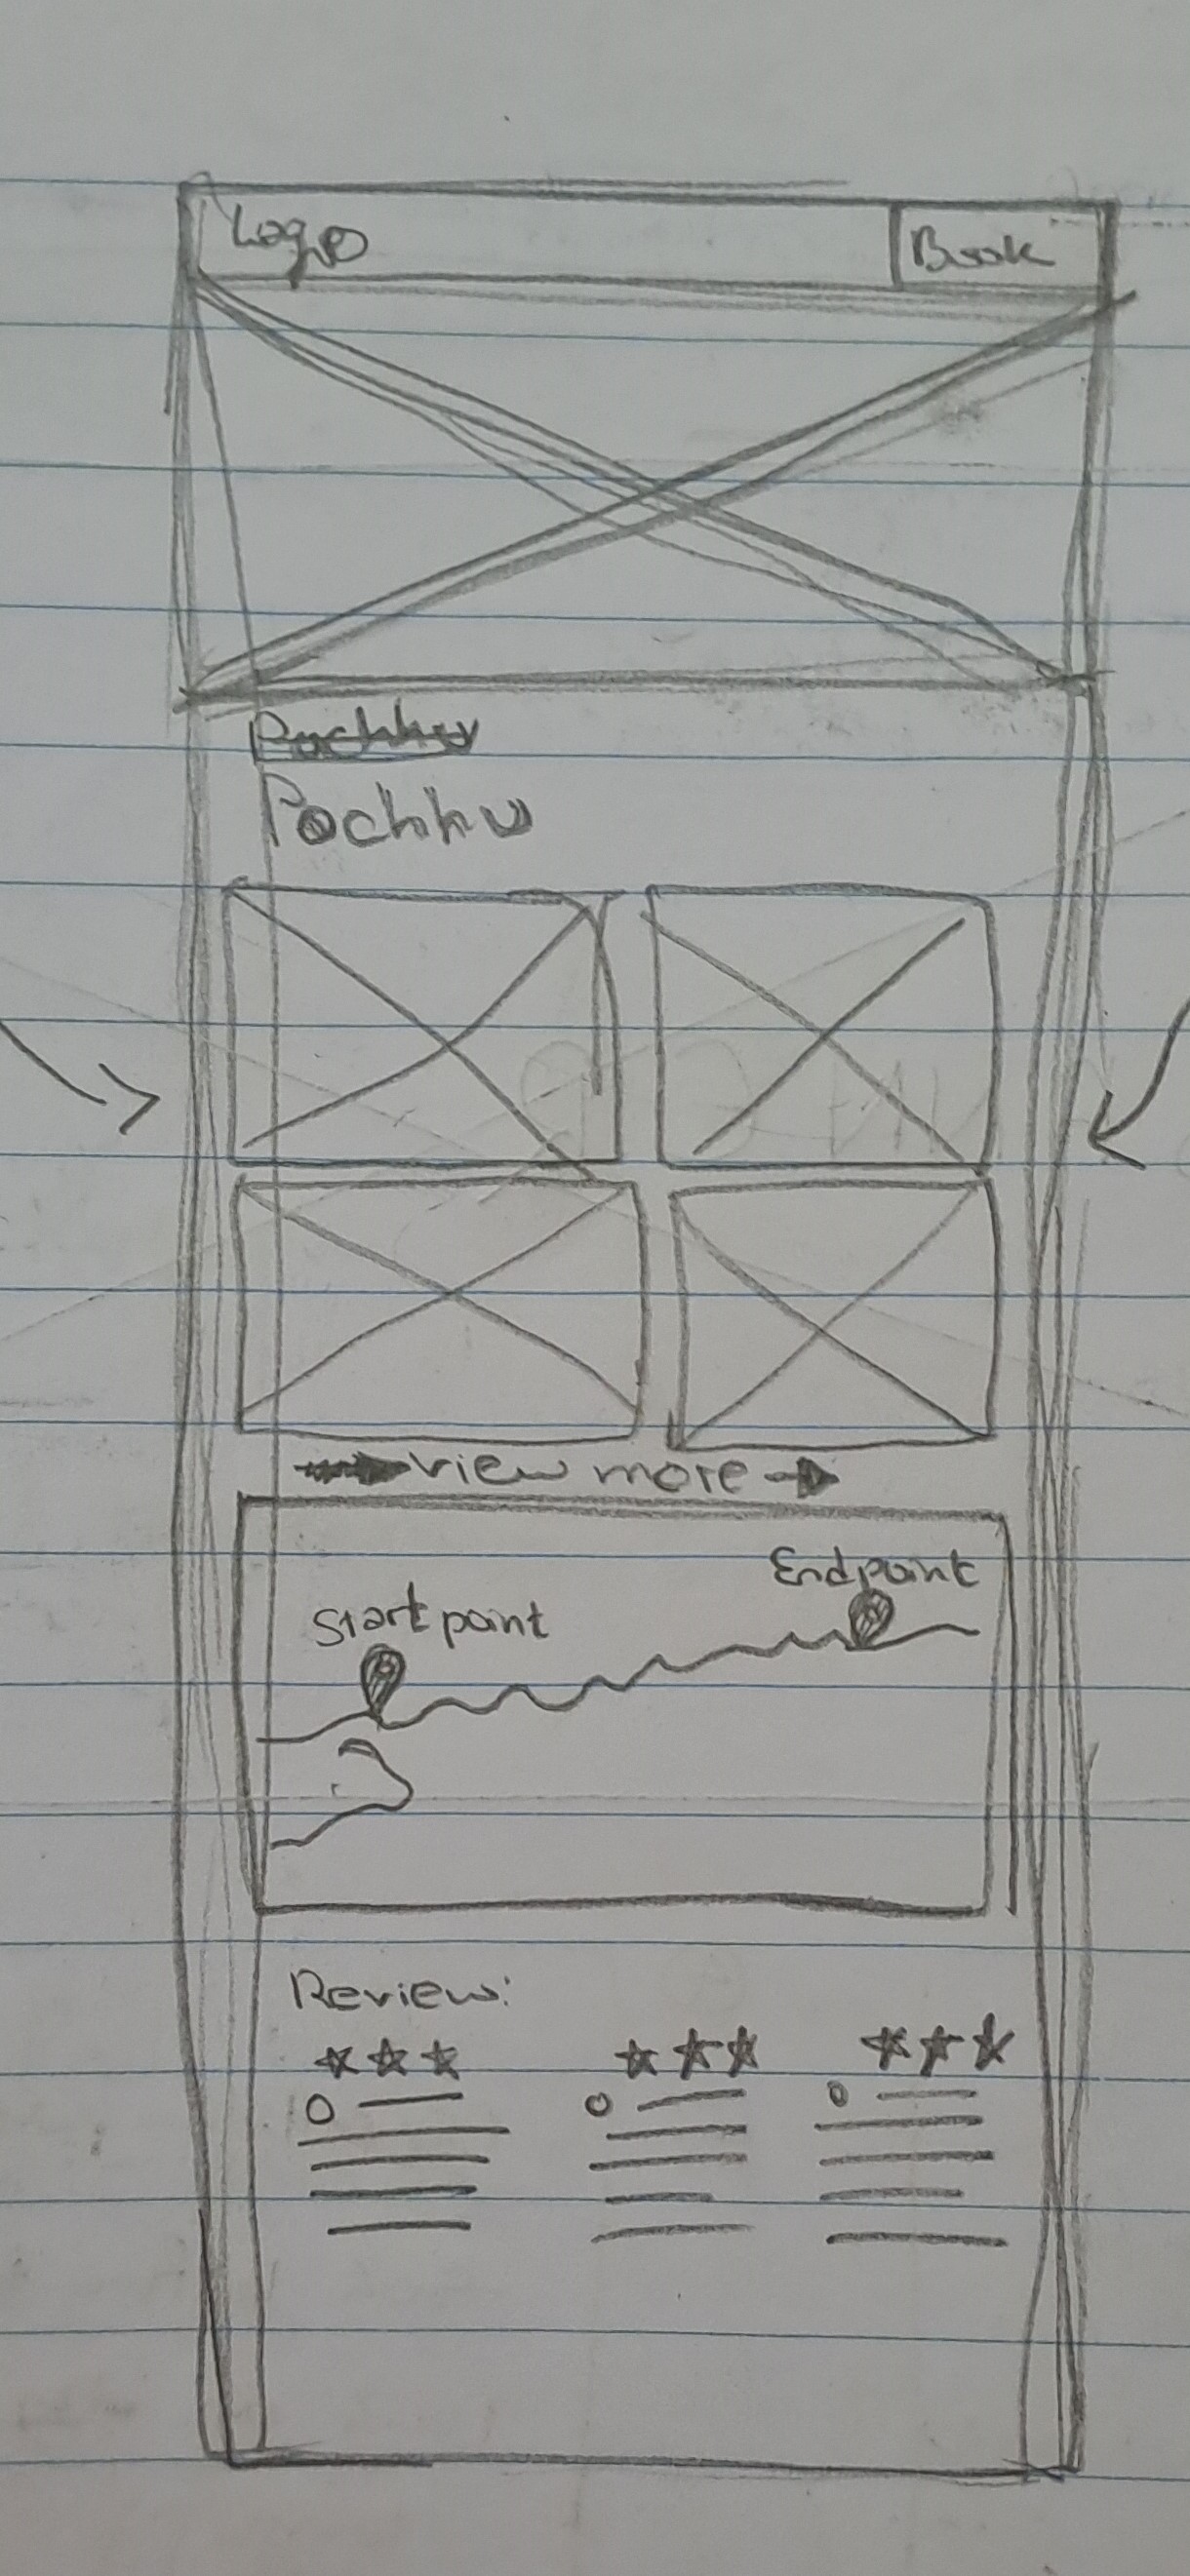 Logo
Book
Pochhu
view more
Endpoint
Start point
Review: